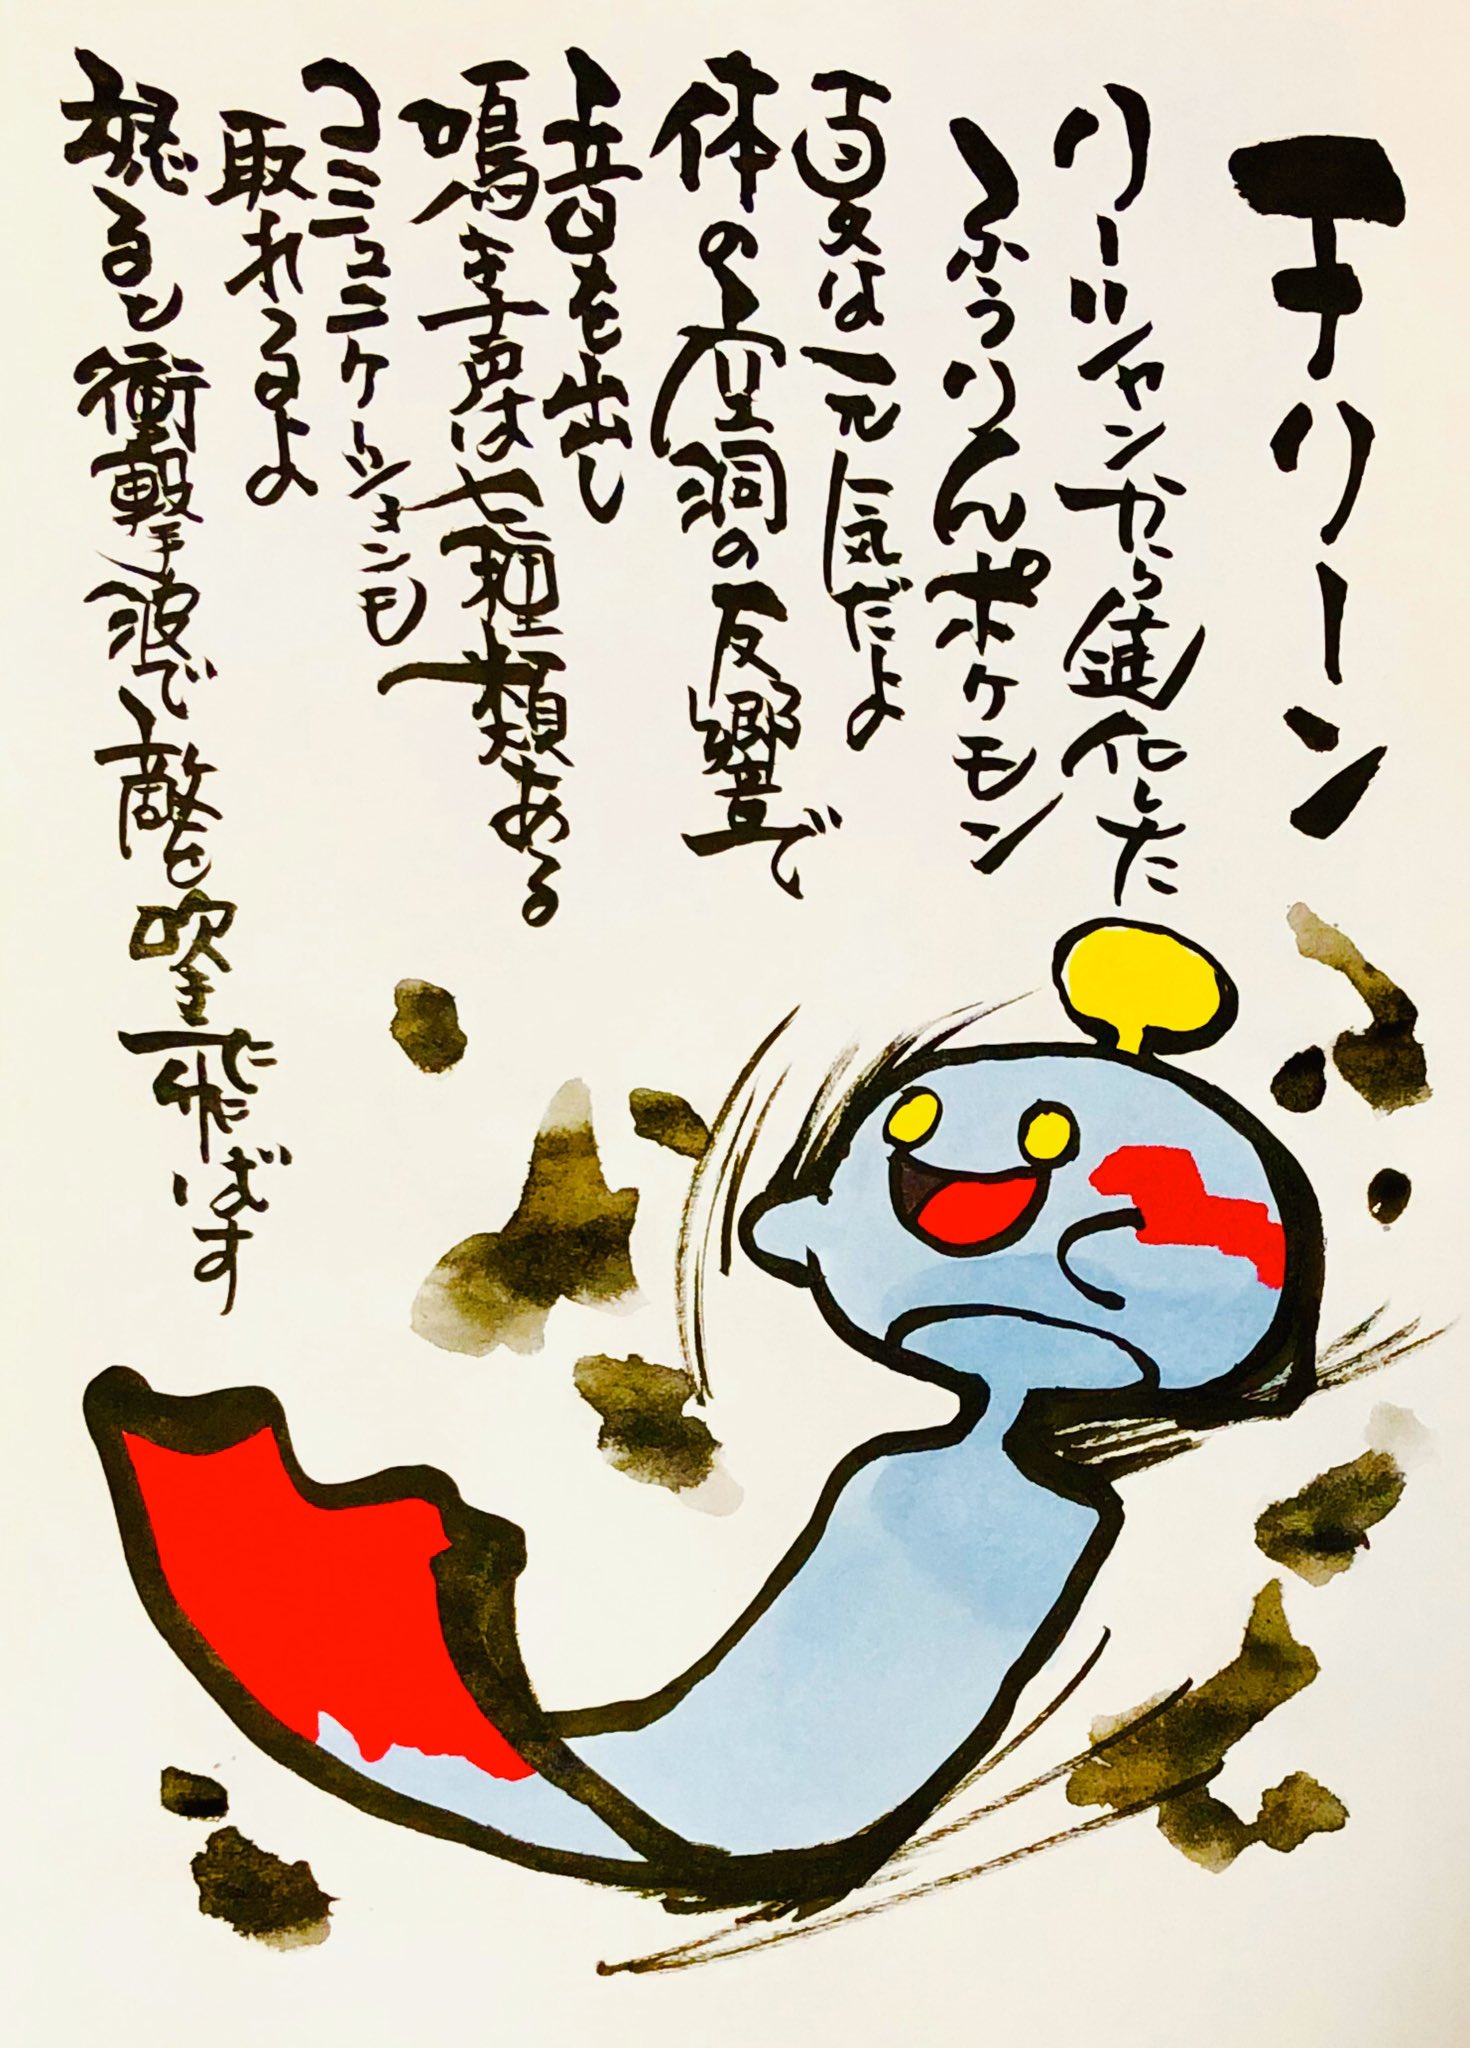 チリーン
リーシャンから進化した
ふうりんポケモン
夏は元気だよ
体の空洞の反響で
音を出し
鳴き声は七種類ある
コミュニケーションも
取れるよ
怒ると衝撃波で敵を吹き飛ばす